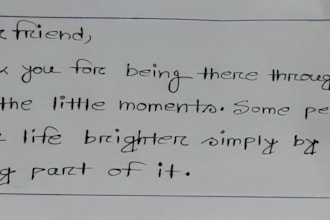 friend,
you for being there throug
the little moments. Some pe
life brighter simply by
g part of it.